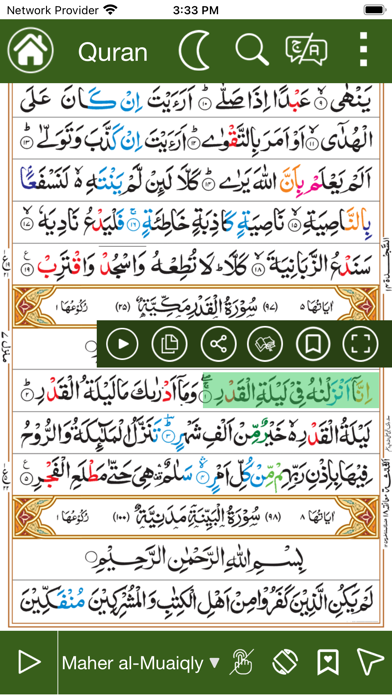 Network Provider 3:33 PM
Quran
يَنْهٰىۙ ۹ عَبْدًا اِذَا صَلّٰىؕ ۱۰ اَرَءَيْتَ اِنْ كَانَ عَلَى
الْهُدٰۤىۙ ۱۱ اَوْ اَمَرَ بِالتَّقْوٰىؕ ۱۲ اَرَءَيْتَ اِنْ كَذَّبَ وَتَوَلّٰىؕ ۱۳
اَلَمْ يَعْلَمْ بِاَنَّ اللّٰهَ يَرٰىؕ ۱۴ كَلَّا لَىِٕنْ لَّمْ يَنْتَهِ ۙ۬ لَنَسْفَعًۢا
بِالنَّاصِيَةِۙ ۱۵ نَاصِيَةٍ كَاذِبَةٍ خَاطِئَةٍۚ ۱۶ فَلْيَدْعُ نَادِيَهٗۙ ۱۷
سَنَدْعُ الزَّبَانِيَةَۙ ۱۸ كَلَّا ؕ لَا تُطِعْهُ وَاسْجُدْ وَاقْتَرِبْ ۱۹
اٰيَاتُهَا ۵ (۹۷) سُوْرَةُ الْقَدْرِ مَكِّيَّةٌ (۲۵) رُكُوْعُهَا ۱
اِنَّاۤ اَنْزَلْنٰهُ فِيْ لَيْلَةِ الْقَدْرِۚ ۱ وَمَاۤ اَدْرٰىكَ مَا لَيْلَةُ الْقَدْرِؕ ۲
لَيْلَةُ الْقَدْرِ ۙ۬ خَيْرٌ مِّنْ اَلْفِ شَهْرٍؕ ۳ تَنَزَّلُ الْمَلٰٓىِٕكَةُ وَالرُّوْحُ
فِيْهَا بِاِذْنِ رَبِّهِمْ ۚ مِنْ كُلِّ اَمْرٍۙ ۴ سَلٰمٌ ۛ۫ هِيَ حَتّٰى مَطْلَعِ الْفَجْرِ ۵
اٰيَاتُهَا ۸ (۹۸) سُوْرَةُ الْبَيِّنَةِ مَدَنِيَّةٌ (۱۰۰) رُكُوْعُهَا ۱
بِسْمِ اللّٰهِ الرَّحْمٰنِ الرَّحِيْمِ
لَمْ يَكُنِ الَّذِيْنَ كَفَرُوْا مِنْ اَهْلِ الْكِتٰبِ وَالْمُشْرِكِيْنَ مُنْفَكِّيْنَ
Maher al-Muaiqly